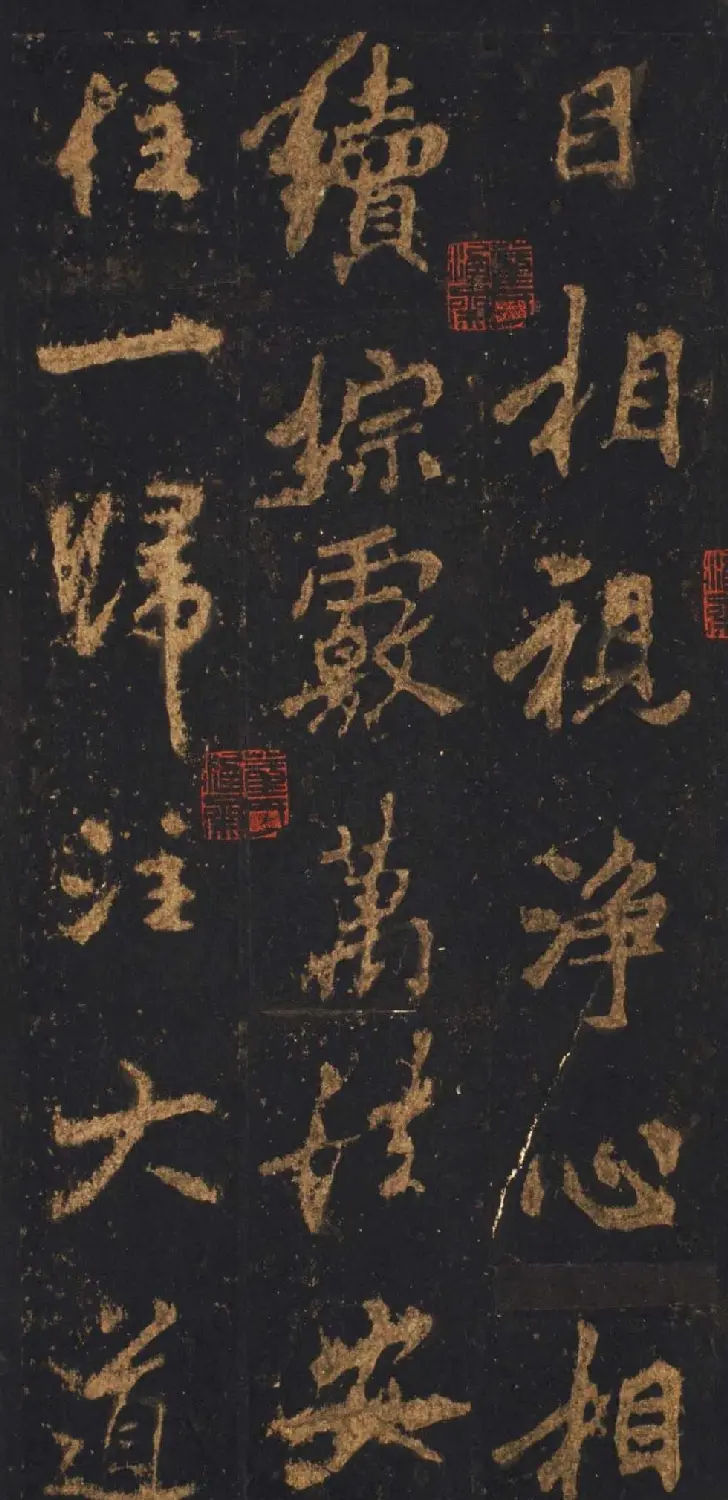 目相視浄心相
續綜覈萬安
住一歸注大道